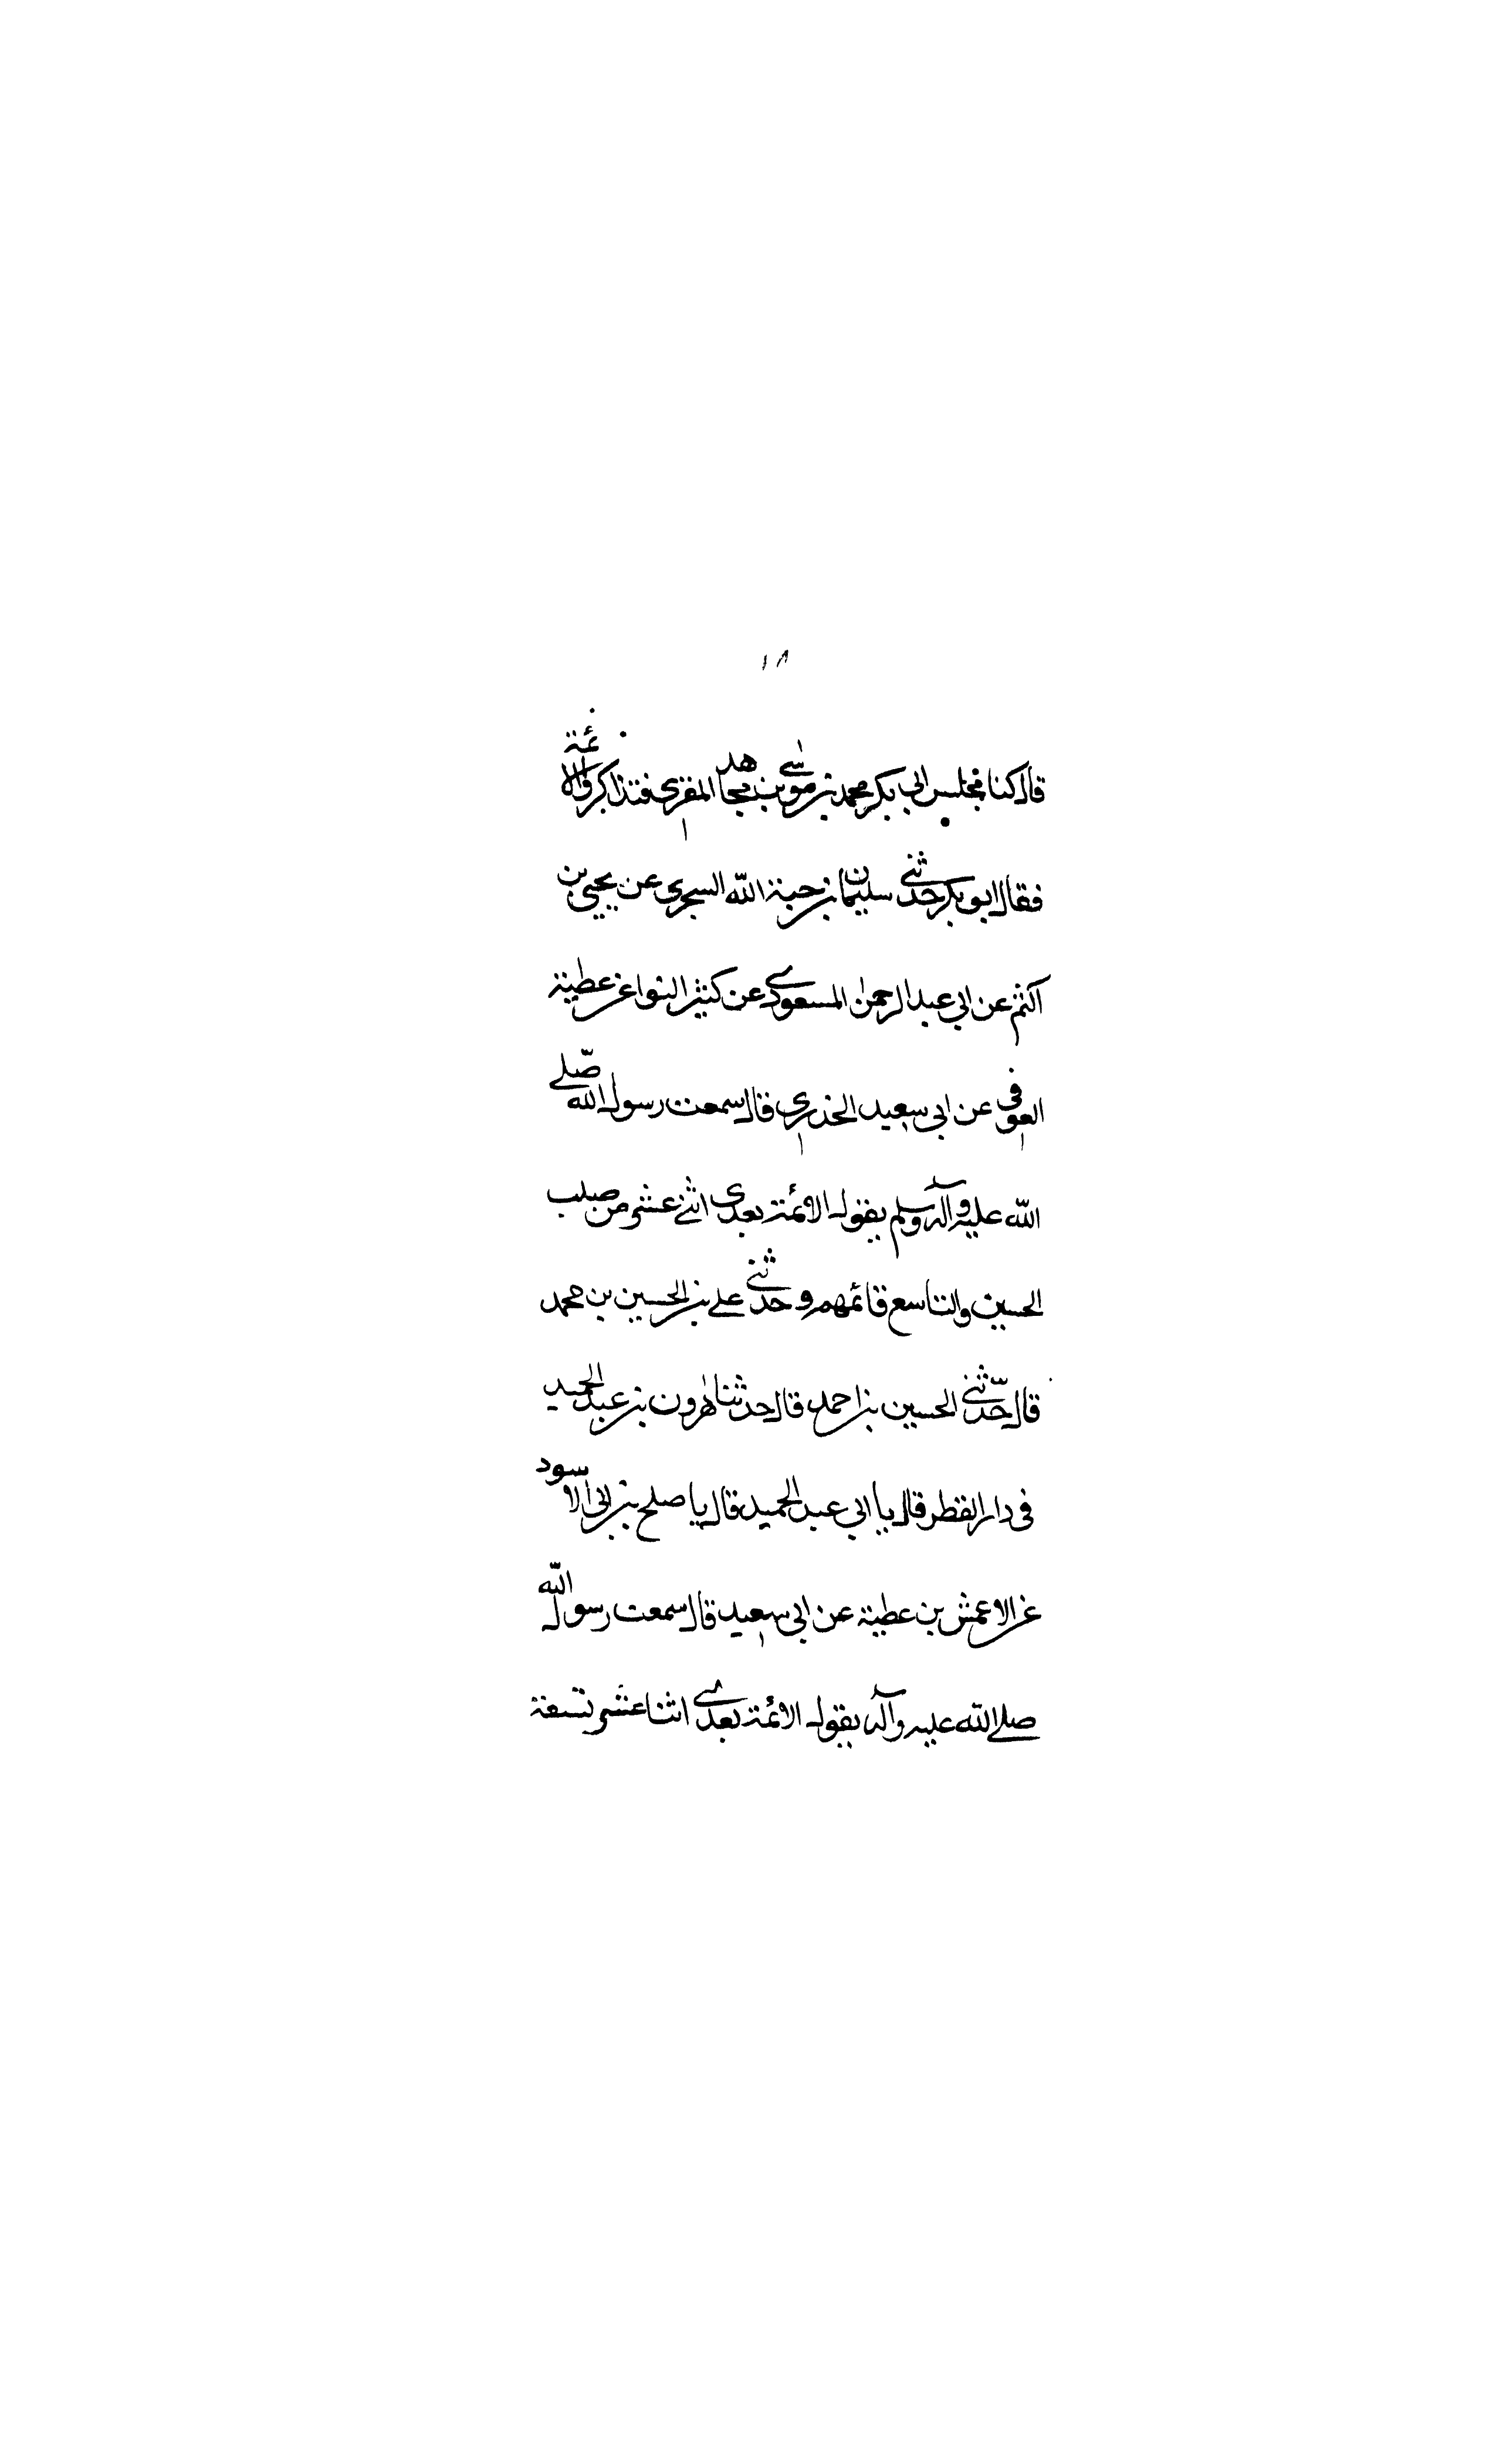 ١٨
قال كنا بمجلس ابي بكر محمد بن موسى بن مجاهد المقري فتذاكروا الائمة
فقال ابو بكر حدثني سليمان بن حبة الله السجري عن يحيى بن
اكثم عن ابي عبد الرحمن المسعودي عن كثير النوا عن عطية
العوفى عن ابي سعيد الخدري قال سمعت رسول الله صلى
الله عليه وآله وسلم يقول الائمة بعدى اثنى عشر من صلب
الحسين والتاسع قائمهم وحدثني علي بن الحسين بن محمد
قال حدّثني الحسين بن احمد قال حدثنا هرون بن عبد الحميد
في دار القطر قال يا ابي عبد الحميد قال يا صلح بن ابي الاسود
عن الاعمش بن عطية عن ابي سعيد قال سمعت رسول الله
صلى الله عليه وآله يقول الائمة بعدي اثنا عشر تسعة